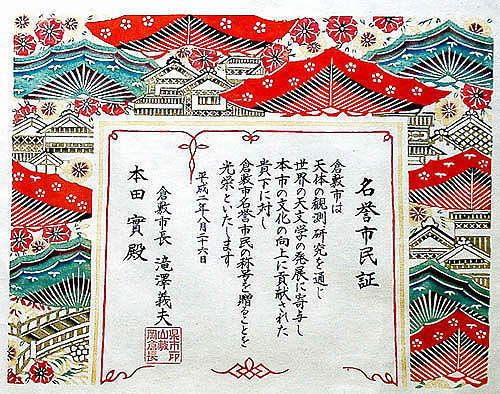 名誉市民証
倉敷市は
天体の観測研究を通じ
世界の天文学の発展に寄与し
本市の文化の向上に貢献された
貴下に対し
倉敷市名誉市民の称号を贈ることを
光栄といたします
平成二年八月二十六日
倉敷市長 滝澤義夫
本田 實殿
岡山県
倉敷市